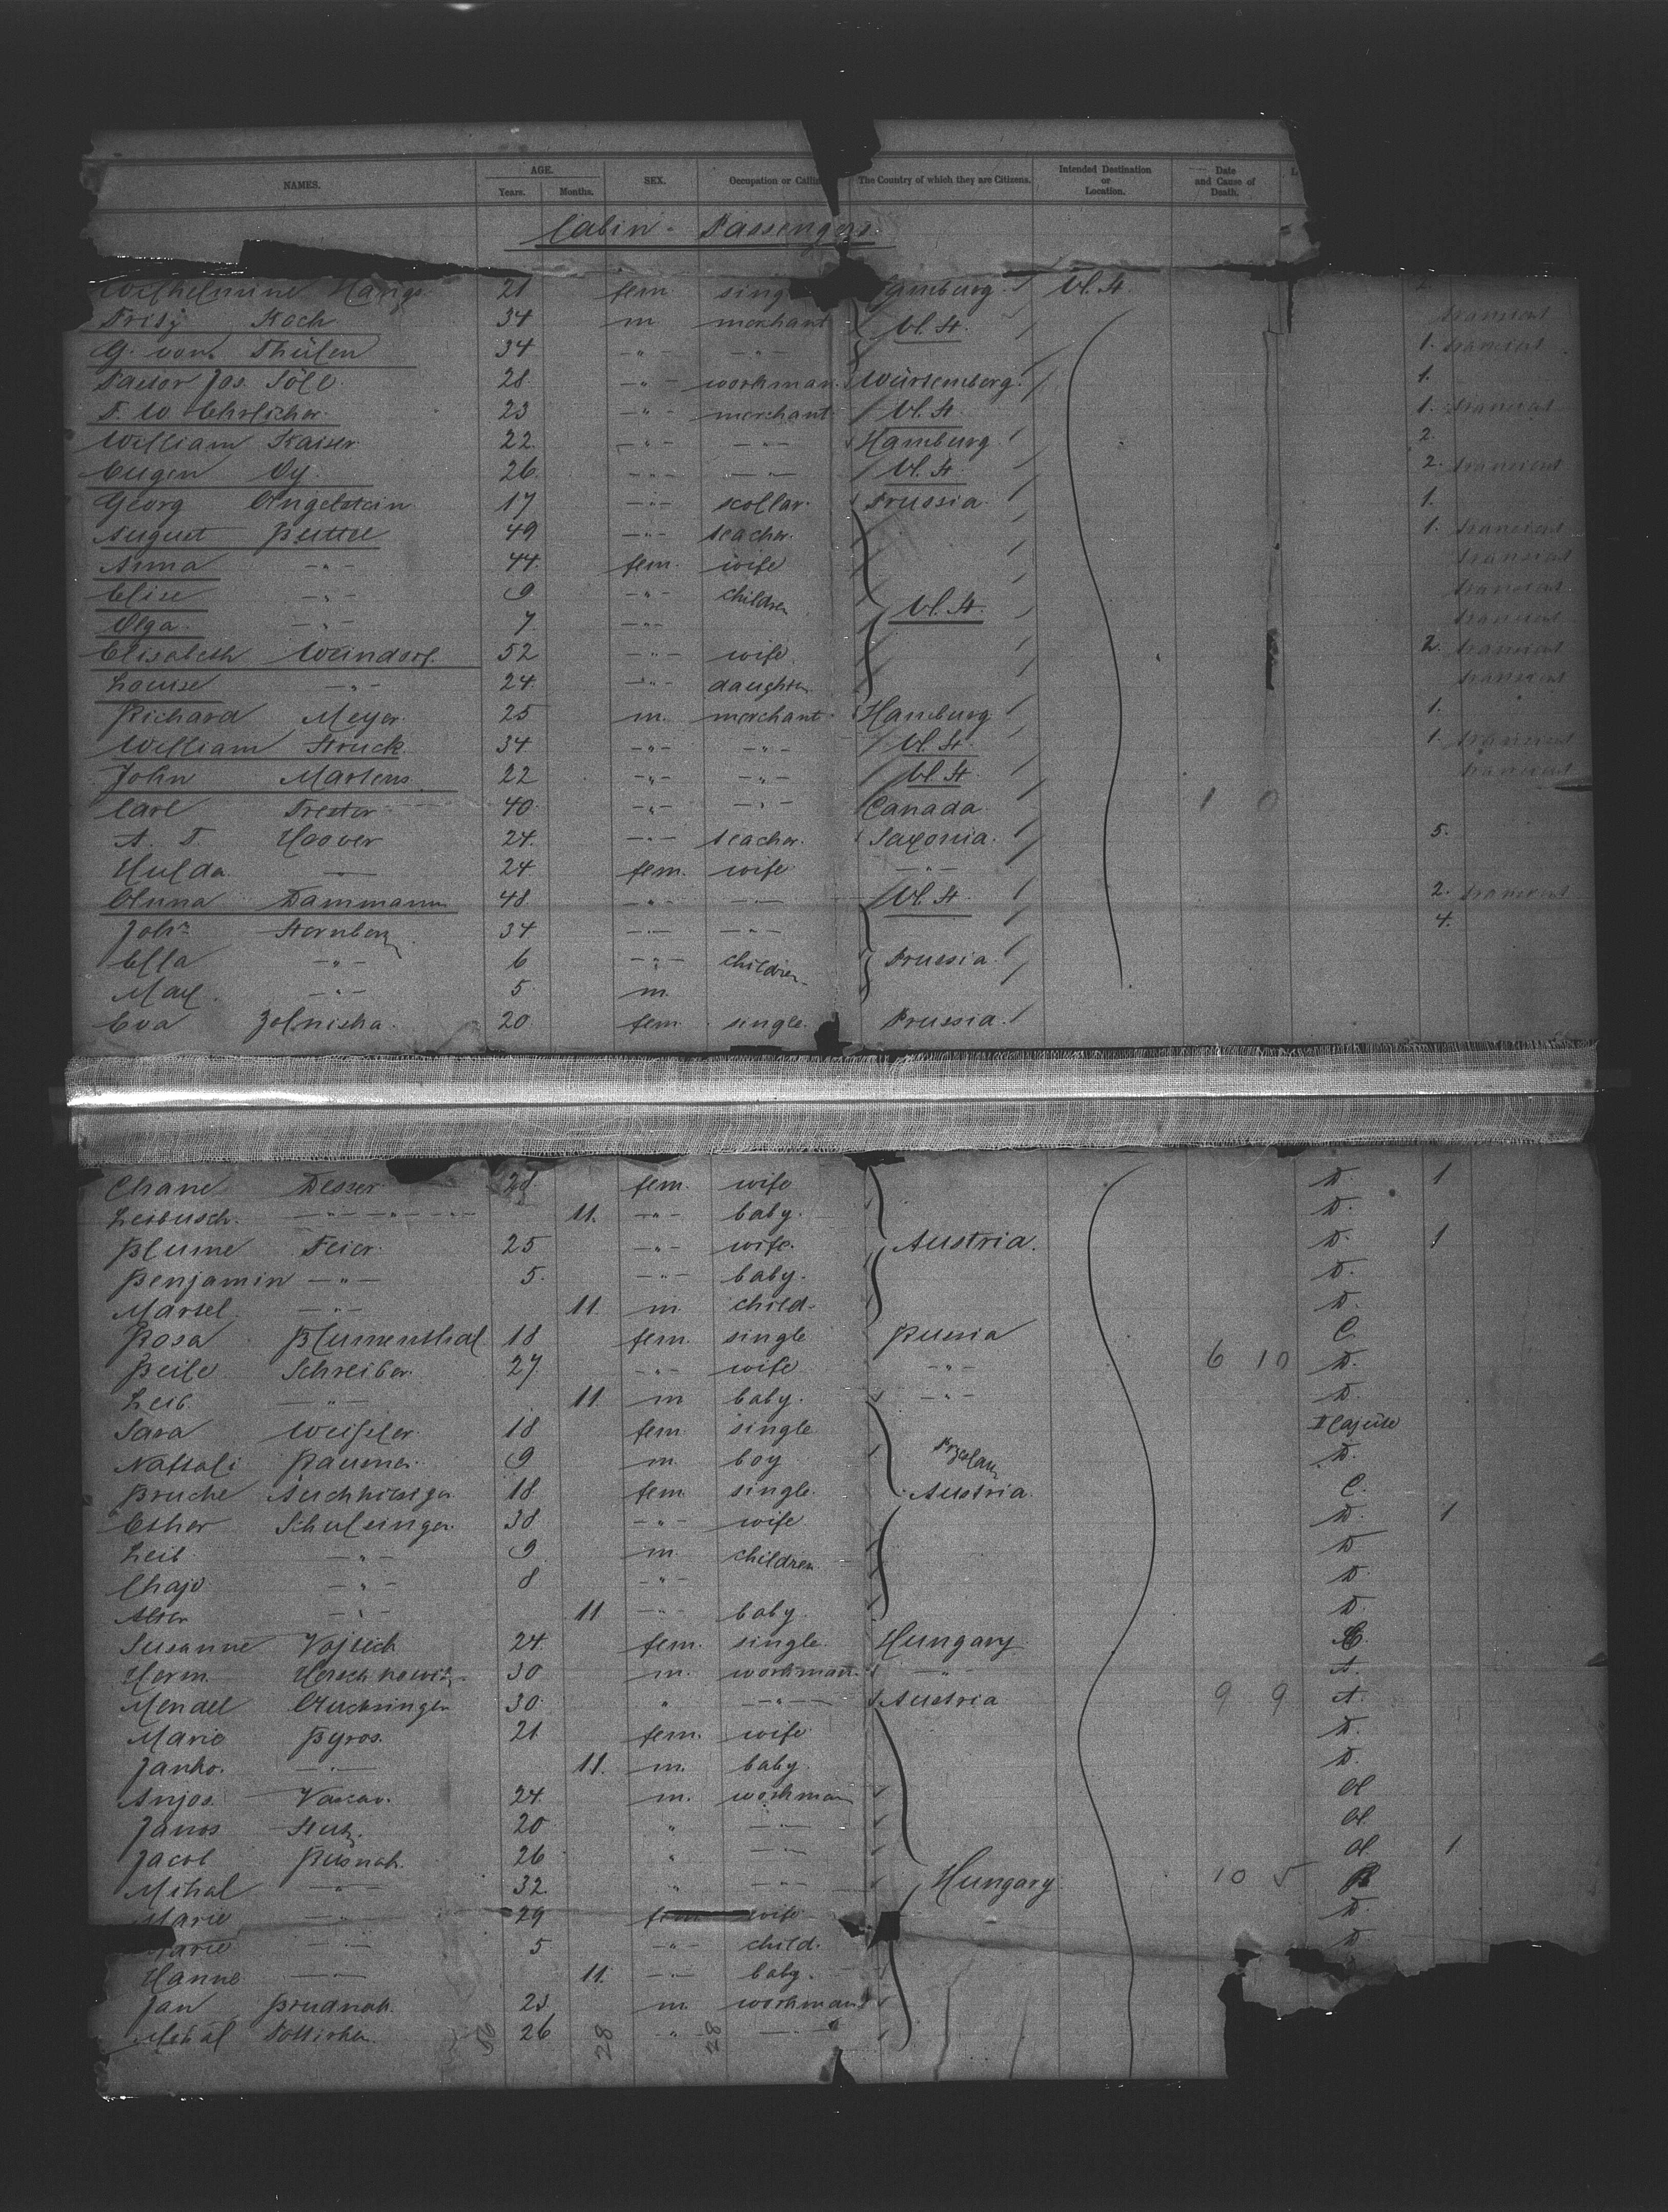 NAMES. AGE. Years. Months. SEX. Occupation or Callin The Country of which they are Citizens. Intended Destination or Location. Date and Cause of Death.
Cabin - Passengers.
Wilhelmine 21 fem. sing Hamburg U. St.
Koch 34 m merchant U. St. transient
G. von Thülen 34 -"- -"- 1. transient
Pastor Jos. Söll. 28 -"- workman. Würtemberg. 1.
F. W. Ehrlicher. 23 -"- merchant U. St. 1. transient
William Kaiser. 22. -"- -"- Hamburg. 2.
Eugen Oy. 26. -"- -"- U. St. 2. transient
Georg Angelstein 17 -"- scollar. Prussia. 1.
August 49 -"- teacher. 1. transient
Anna -"- 44. fem. wife transient
Elise -"- 9 -"- children transient
Olga. -"- 7. -"- U. St. transient
Elisabeth Weindorf. 52 -"- wife. 2. transient
Louise -"- 24. -"- daughter transient
Richard Meyer. 25 m. merchant Hamburg 1.
William Struck. 34 -"- -"- U. St. 1. transient
John Martens. 22 -"- -"- U. St. transient
Carl Trester 40. -"- -"- Canada. 1 0
A. T. Hoover 24. -"- teacher. Saxonia. 5.
Hulda -"- 24 fem. wife -"-
Anna Dammann 48. -"- -"- U. St. 2. transient
Joh. Sternberg 34 -"- -"- 4.
Ella -"- 6 -"- children Prussia.
Max. -"- 5. m.
Eva 20. fem. single. Prussia.
Chane Desser 28. fem. wife D. 1
Leibusch. -"- -"- 11. -"- baby. D.
Blume Feier. 25 -"- wife. Austria. D. 1
Benjamin -"- 5. -"- baby. D.
Marsel. -"- 11. m. child. D.
Rosa Blumenthal 18 fem. single Russia C.
Beile Schreiber. 27. -"- wife -"- 6 10 D.
Leib. -"- 11. m baby. -"- D.
Sara 18 fem. single II Cajüte
Naftali 9 m. boy D.
Bruche 18. fem. single. Austria. C.
Esther Schulsinger. 38 -"- wife D. 1
Leib. -"- 9 m. children D
Chaje -"- 8 -"- D.
Alter -"- 11 -"- baby. D.
Susanne 24. fem. single. Hungary.
Herm. Herschkowitz. 30 m. workman. -"- A.
Mendel 30. " -"- Austria 9 9 A.
Marie Pyros. 21 fem. wife D.
Janko. -"- 11. m. baby. D.
24. m. workman A
Janos 20 " -"- A.
Jacob 26 " -"- A. 1
Mihal -"- 32. " -"- Hungary. 10 5
Marie -"- 29 fem wife D.
Marie -"- 5 -"- child. D
Hanne -"- 11. -"- baby.
Jan Prudnak. 23 m. workman
Mihal 26 -"- -"-
56 28 28